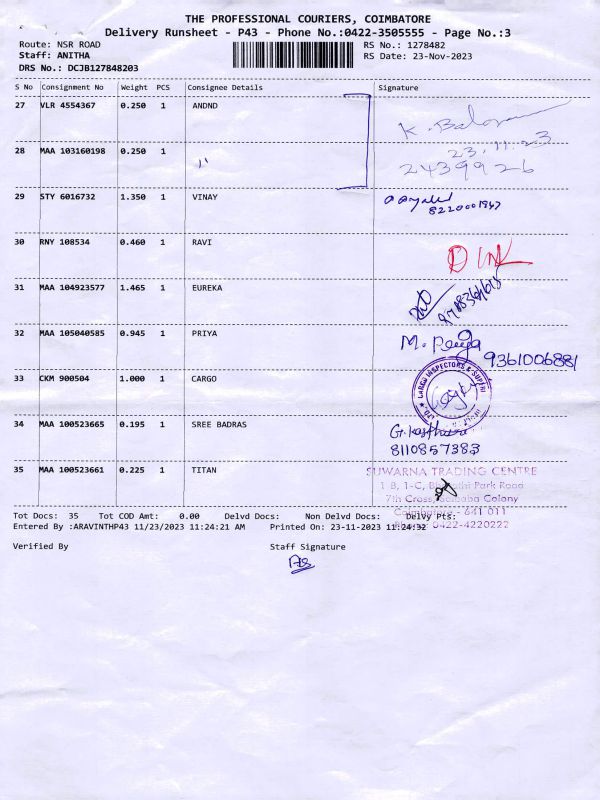 THE PROFESSIONAL COURIERS, COIMBATORE
Delivery Runsheet - P43 - Phone No.:0422-3505555 - Page No.:3
Route: NSR ROAD
RS No.: 1278482
Staff: ANITHA
RS Date: 23-Nov-2023
DRS No.: DCJB127848203
S No Consignment No Weight PCS Consignee Details Signature
27 VLR 4554367 0.250 1 ANDND
K. 
23.11.23
28 MAA 103160198 0.250 1 "
2439926
29 STY 6016732 1.350 1 VINAY
8220001947
30 RNY 108534 0.460 1 RAVI
31 MAA 104923577 1.465 1 EUREKA
32 MAA 105040585 0.945 1 PRIYA
M. 9361006881
33 CKM 900504 1.000 1 CARGO
CARGO INSPECTORS & SUPERI
34 MAA 100523665 0.195 1 SREE BADRAS
8110857383
35 MAA 100523661 0.225 1 TITAN
SUWARNA TRADING CENTRE
1 B, 1-C, Bharathi Park Road
7th Cross, Saibaba Colony
Coimbatore - 641 011
Phone: 0422-4220222
Tot Docs: 35 Tot COD Amt: 0.00 Delvd Docs: Non Delvd Docs: Delvy Pts:
Entered By :ARAVINTHP43 11/23/2023 11:24:21 AM Printed On: 23-11-2023 11:24:32
Verified By Staff Signature